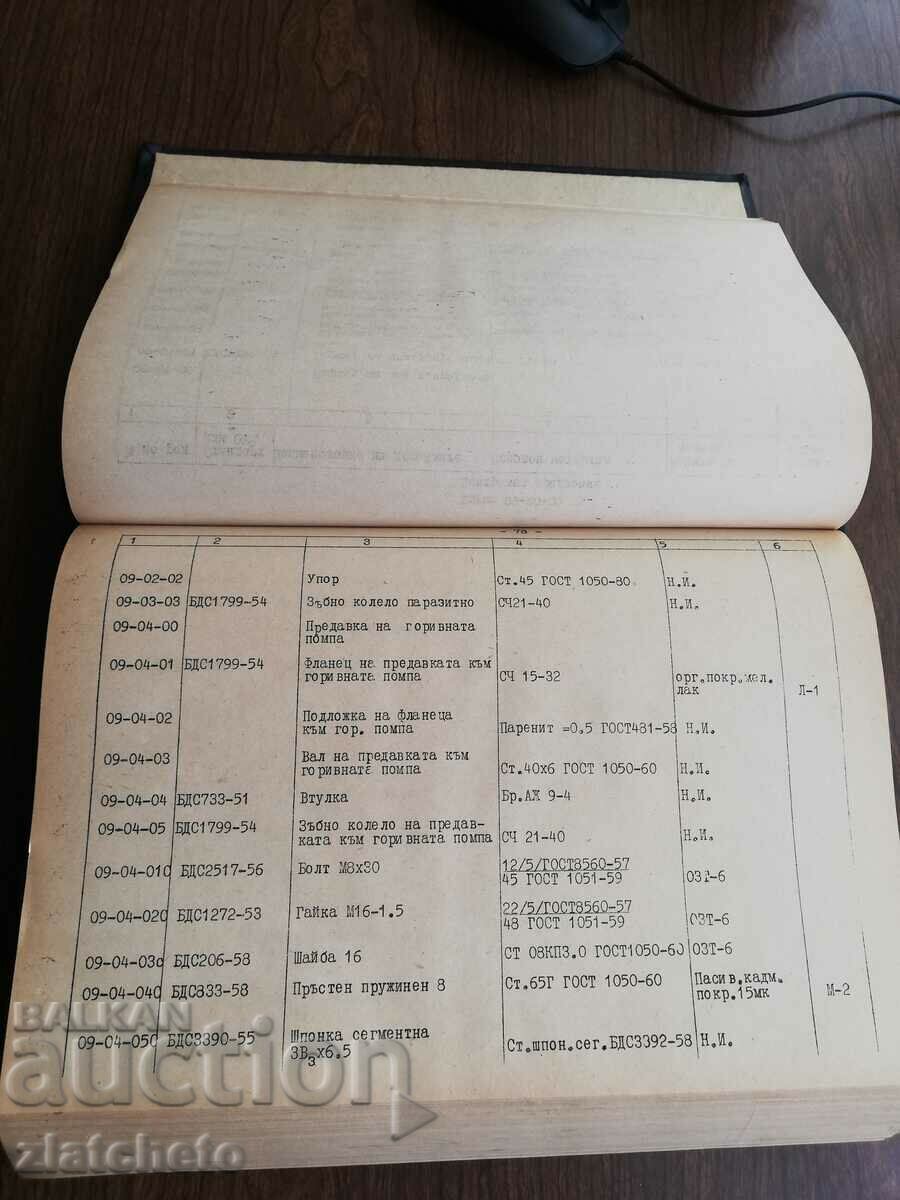 - 78 -
1 2 3 4 5 6
09-02-02 Упор Ст.45 ГОСТ 1050-80 Н.И.
09-03-03 БДС1799-54 Зъбно колело паразитно СЧ21-40 Н.И.
09-04-00 Предавка на горивната
помпа
09-04-01 БДС1799-54 Фланец на предавката към
горивната помпа СЧ 15-32 орг.покр.мел.
лак Л-1
09-04-02 Подложка на фланеца
към гор. помпа Паренит =0.5 ГОСТ481-58 Н.И.
09-04-03 Вал на предавката към
горивната помпа Ст.40х6 ГОСТ 1050-60 Н.И.
09-04-04 БДС733-51 Втулка Бр.АЖ 9-4 Н.И.
09-04-05 БДС1799-54 Зъбно колело на предав-
ката към горивната помпа СЧ 21-40 Н.И.
09-04-01С БДС2517-56 Болт М8х30 12/5/ГОСТ8560-57
45 ГОСТ 1051-59 ОЗТ-6
09-04-02С БДС1272-53 Гайка М16-1.5 22/5/ГОСТ8560-57
48 ГОСТ 1051-59 ОЗТ-6
09-04-03с БДС206-58 Шайба 16 СТ 08КП3.0 ГОСТ1050-60 ОЗТ-6
09-04-04С БДС833-58 Пръстен пружинен 8 Ст.65Г ГОСТ 1050-60 Пасив.кадм.
покр.15мк М-2
09-04-05С БДС3390-55 Шпонка сегментна
3В₃х6.5 Ст.шпон.сег.БДС3392-58 Н.И.
BALKAN
auction
zlatcheto